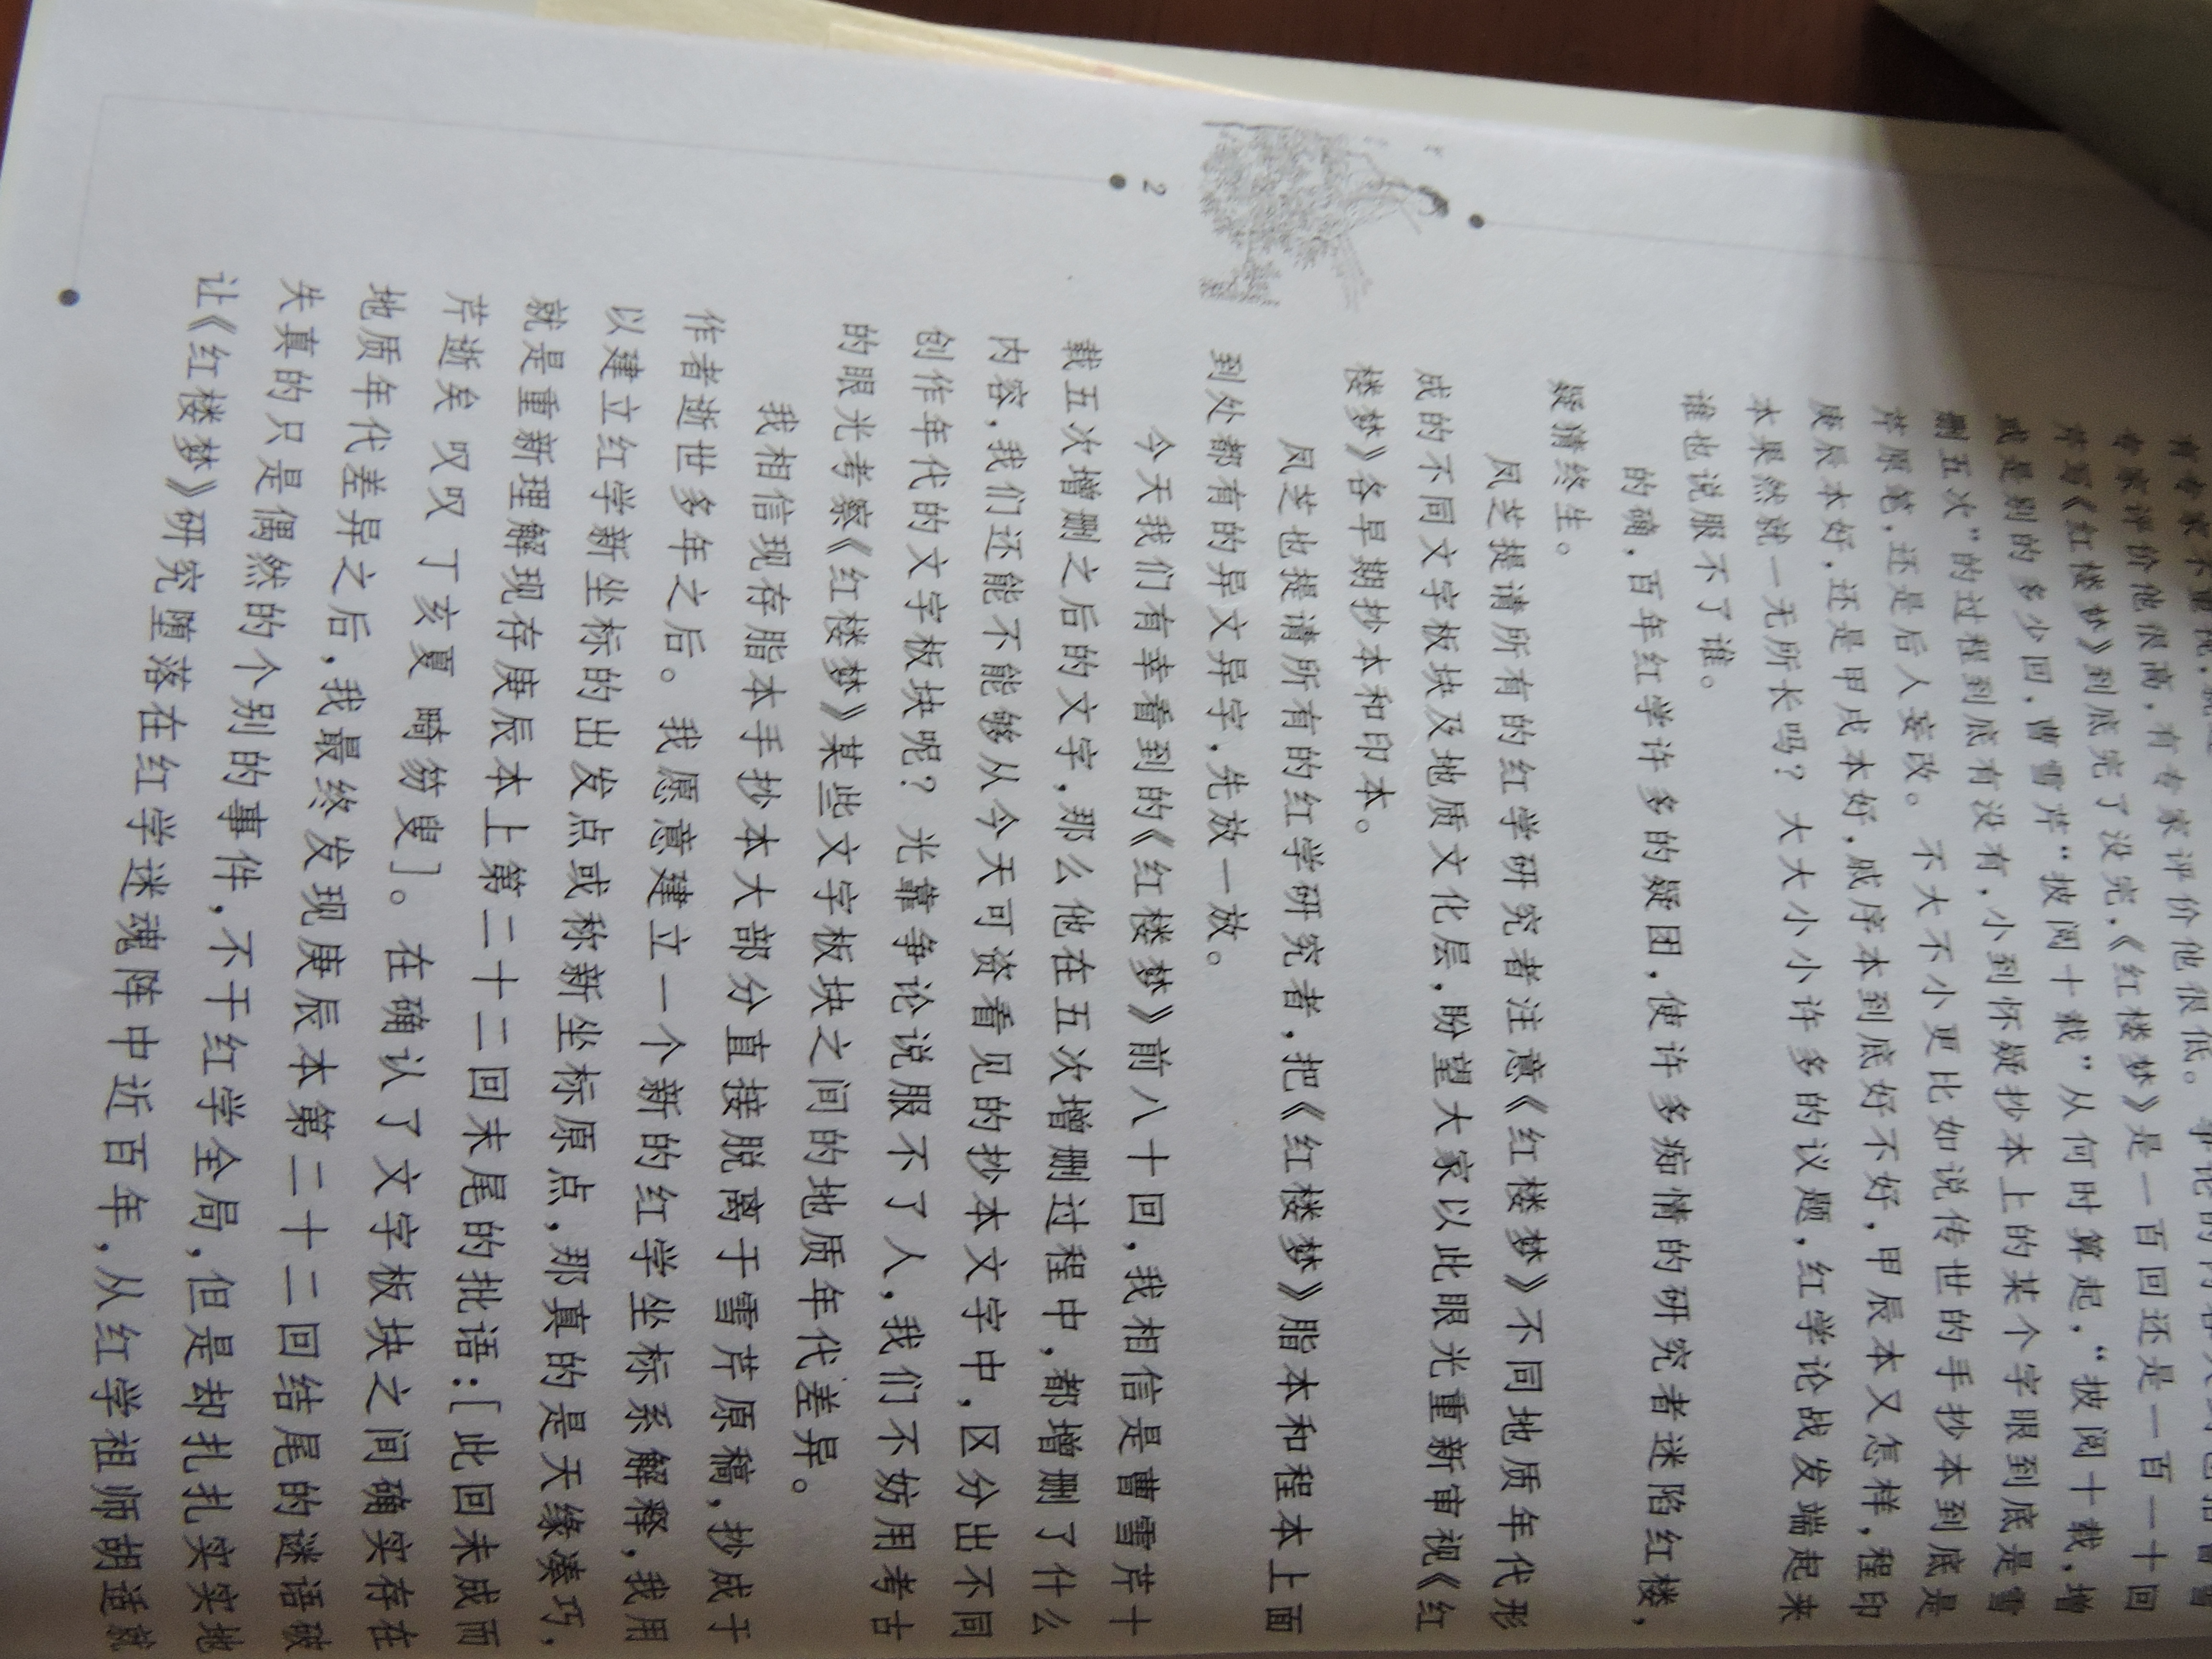 有专家不重视,就连
专家评价他很高,有专家评价他很低。争论的内容大到包括曹雪
芹写《红楼梦》到底完了没完,《红楼梦》是一百回还是一百一十回
或是别的多少回,曹雪芹“披阅十载”从何时算起,“披阅十载,增
删五次”的过程到底有没有,小到怀疑抄本上的某个字眼到底是雪
芹原笔,还是后人妄改。不大不小更比如说传世的手抄本到底是
庚辰本好,还是甲戌本好,戚序本到底好不好,甲辰本又怎样,程印
本果然就一无所长吗?大大小小许多的议题,红学论战发端起来
谁也说服不了谁。
的确,百年红学许多的疑团,使许多痴情的研究者迷陷红楼,
疑猜终生。
凤芝提请所有的红学研究者注意《红楼梦》不同地质年代形
成的不同文字板块及地质文化层,盼望大家以此眼光重新审视《红
楼梦》各早期抄本和印本。
凤芝也提请所有的红学研究者,把《红楼梦》脂本和程本上面
到处都有的异文异字,先放一放。
今天我们有幸看到的《红楼梦》前八十回,我相信是曹雪芹十
载五次增删之后的文字,那么他在五次增删过程中,都增删了什么
内容,我们还能不能够从今天可资看见的抄本文字中,区分出不同
创作年代的文字板块呢?光靠争论说服不了人,我们不妨用考古
的眼光考察《红楼梦》某些文字板块之间的地质年代差异。
我相信现存脂本手抄本大部分直接脱离于雪芹原稿,抄成于
作者逝世多年之后。我愿意建立一个新的红学坐标系解释,我用
以建立红学新坐标的出发点或称新坐标原点,那真的是天缘凑巧,
就是重新理解现存庚辰本上第二十二回末尾的批语:[此回未成而
芹逝矣 叹叹 丁亥夏 畸笏叟]。在确认了文字板块之间确实存在
地质年代差异之后,我最终发现庚辰本第二十二回结尾的谜语破
失真的只是偶然的个别的事件,不干红学全局,但是却扎扎实实地
让《红楼梦》研究堕落在红学迷魂阵中近百年,从红学祖师胡适就
2